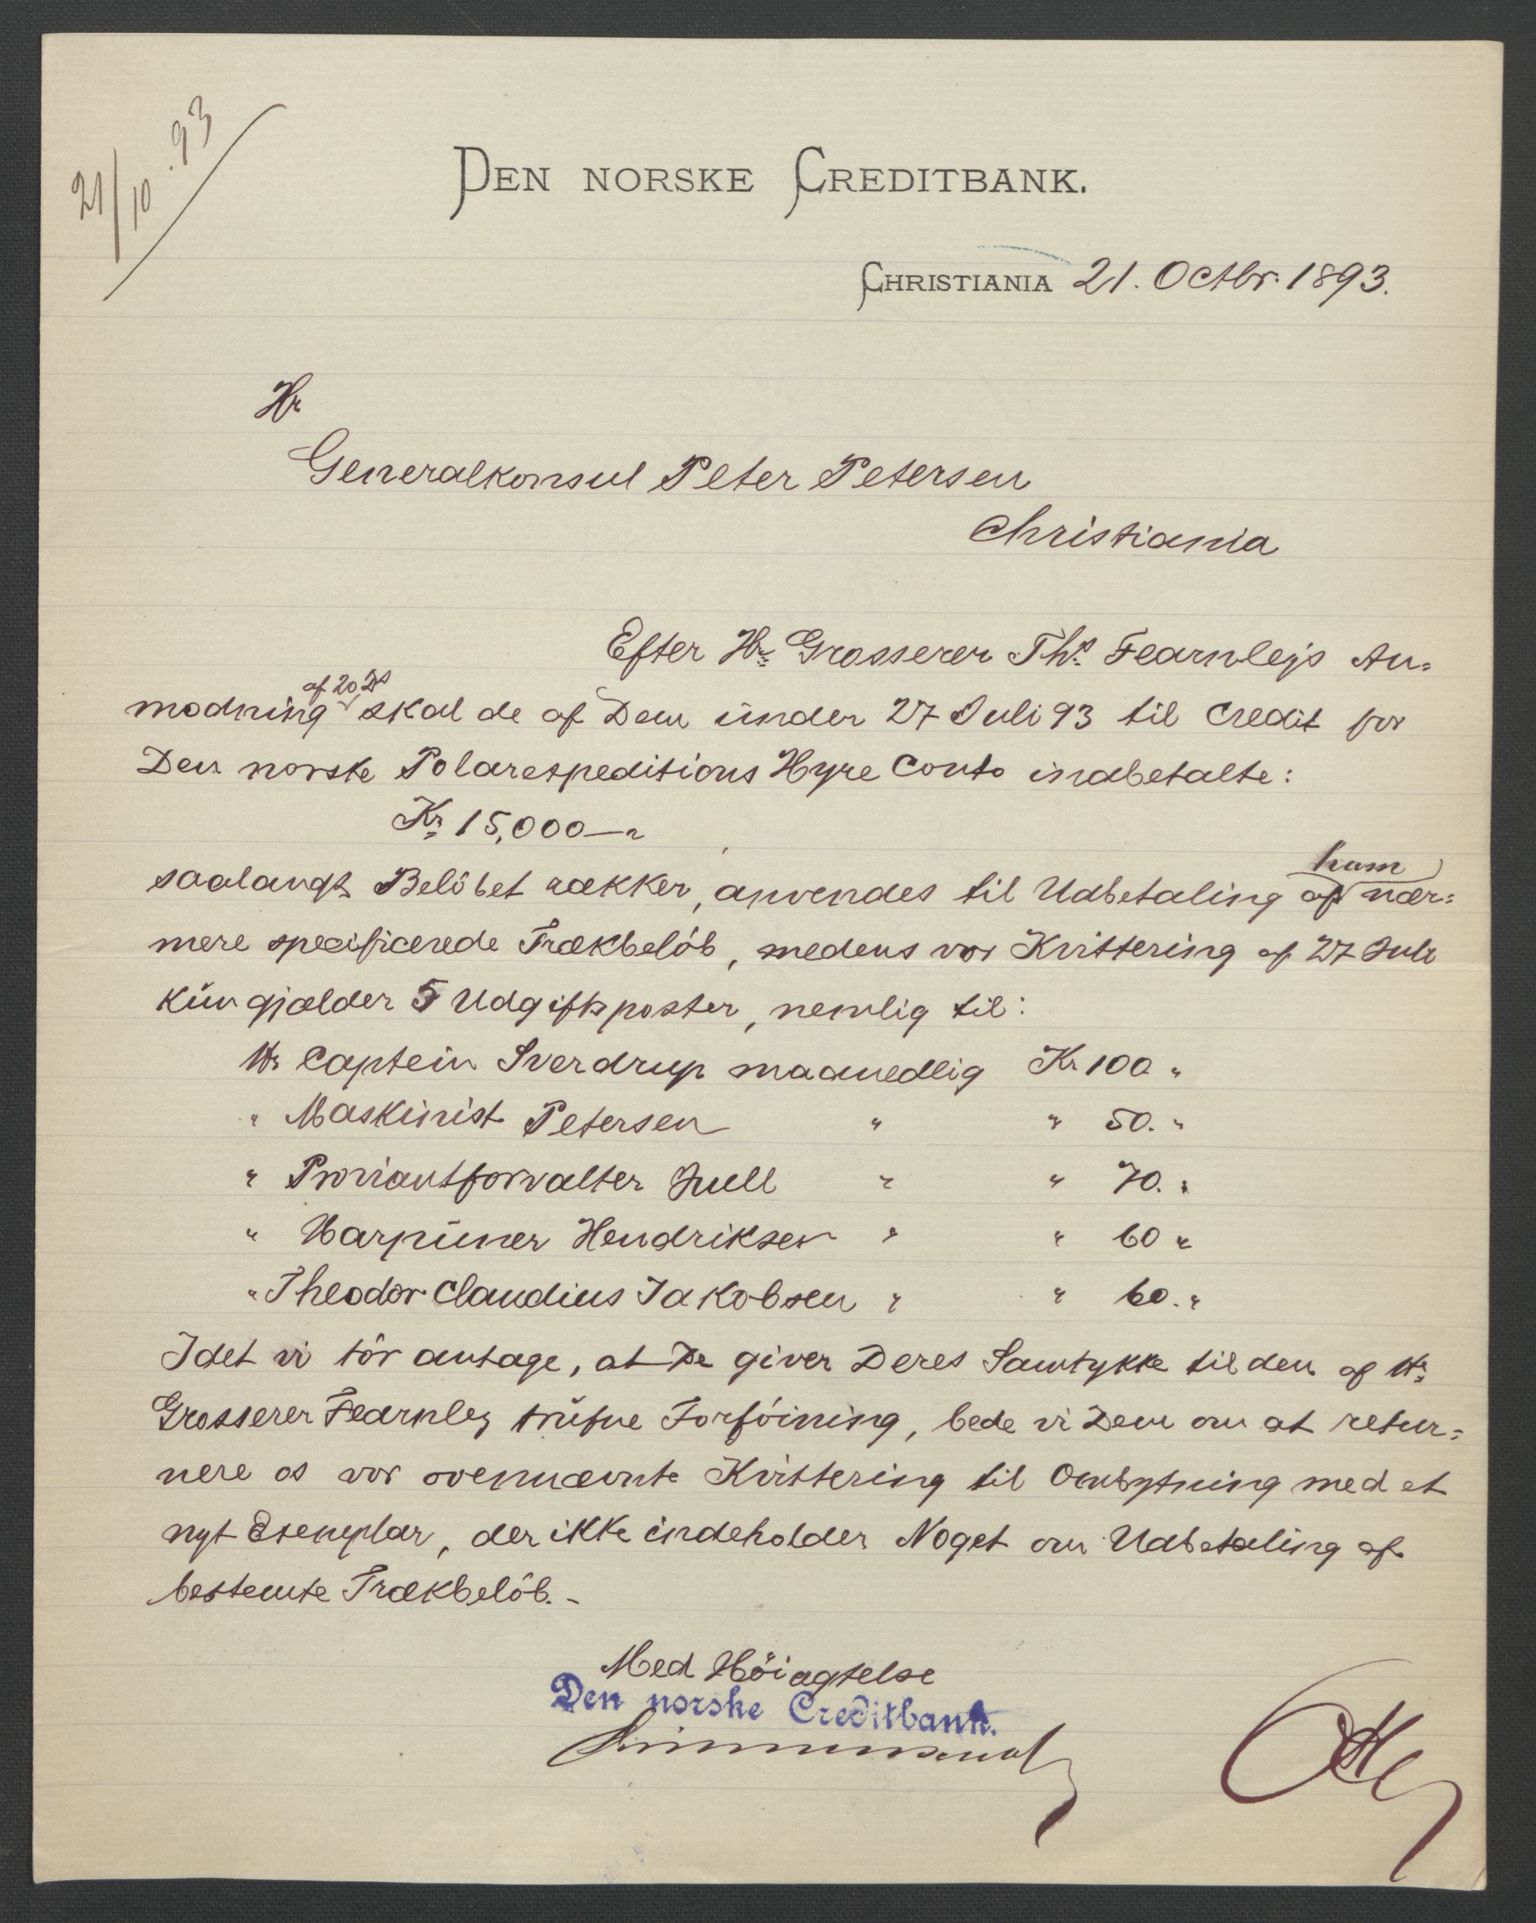 21/10.93
DEN NORSKE CREDITBANK.
CHRISTIANIA 21. Octbr. 1893.
Hr
Generalkonsul Peter Petersen
Christiania
Efter Hr. Grosserer Ths. Fearnleys An=
modning af 20 Ds skal de af Dem under 27 Juli 93 til Credit for
Den norske Polarexpeditions Hyre Conto indbetalte:
Kr. 15,000—"
saalangt Belöbet rækker, anvendes til Udbetaling af ham nær=
mere specificerede Trækbelöb, medens vor Kvittering af 27 Juli
kun gjælder 5 Udgiftsposter, nemlig til:
Hr Captein Sverdrup maanedlig Kr 100 "
" Maskinist Petersen " " 50. "
" Proviantforvalter Juell " " 70. "
" Harpuner Hendriksen " " 60 "
" Theodor Claudius Jakobsen " " 60. "
Idet vi tör antage, at De giver Deres Samtykke til den af Hr.
Grosserer Fearnley trufne Forföining, bede vi Dem om at retur=
nere os vor ovennævnte Kvittering til Ombytning med et
nyt Exemplar, der ikke indeholder Noget om Udbetaling af
bestemte Trækbelöb. -
Med Höiagtelse
Den norske Creditbank.